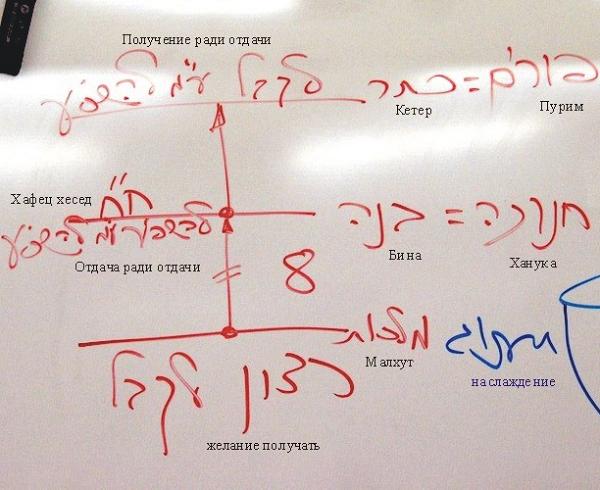 Получение ради отдачи
פורים = כתר לקבל ע"מ להשפיע
Кетер Пурим
Хафец хесед ח"ח
חנוכה = בינה להשפיע ע"מ להשפיע
Отдача ради отдачи Бина Ханука
8
תענוג מלכות
Малхут наслаждение
רצון לקבל
желание получать